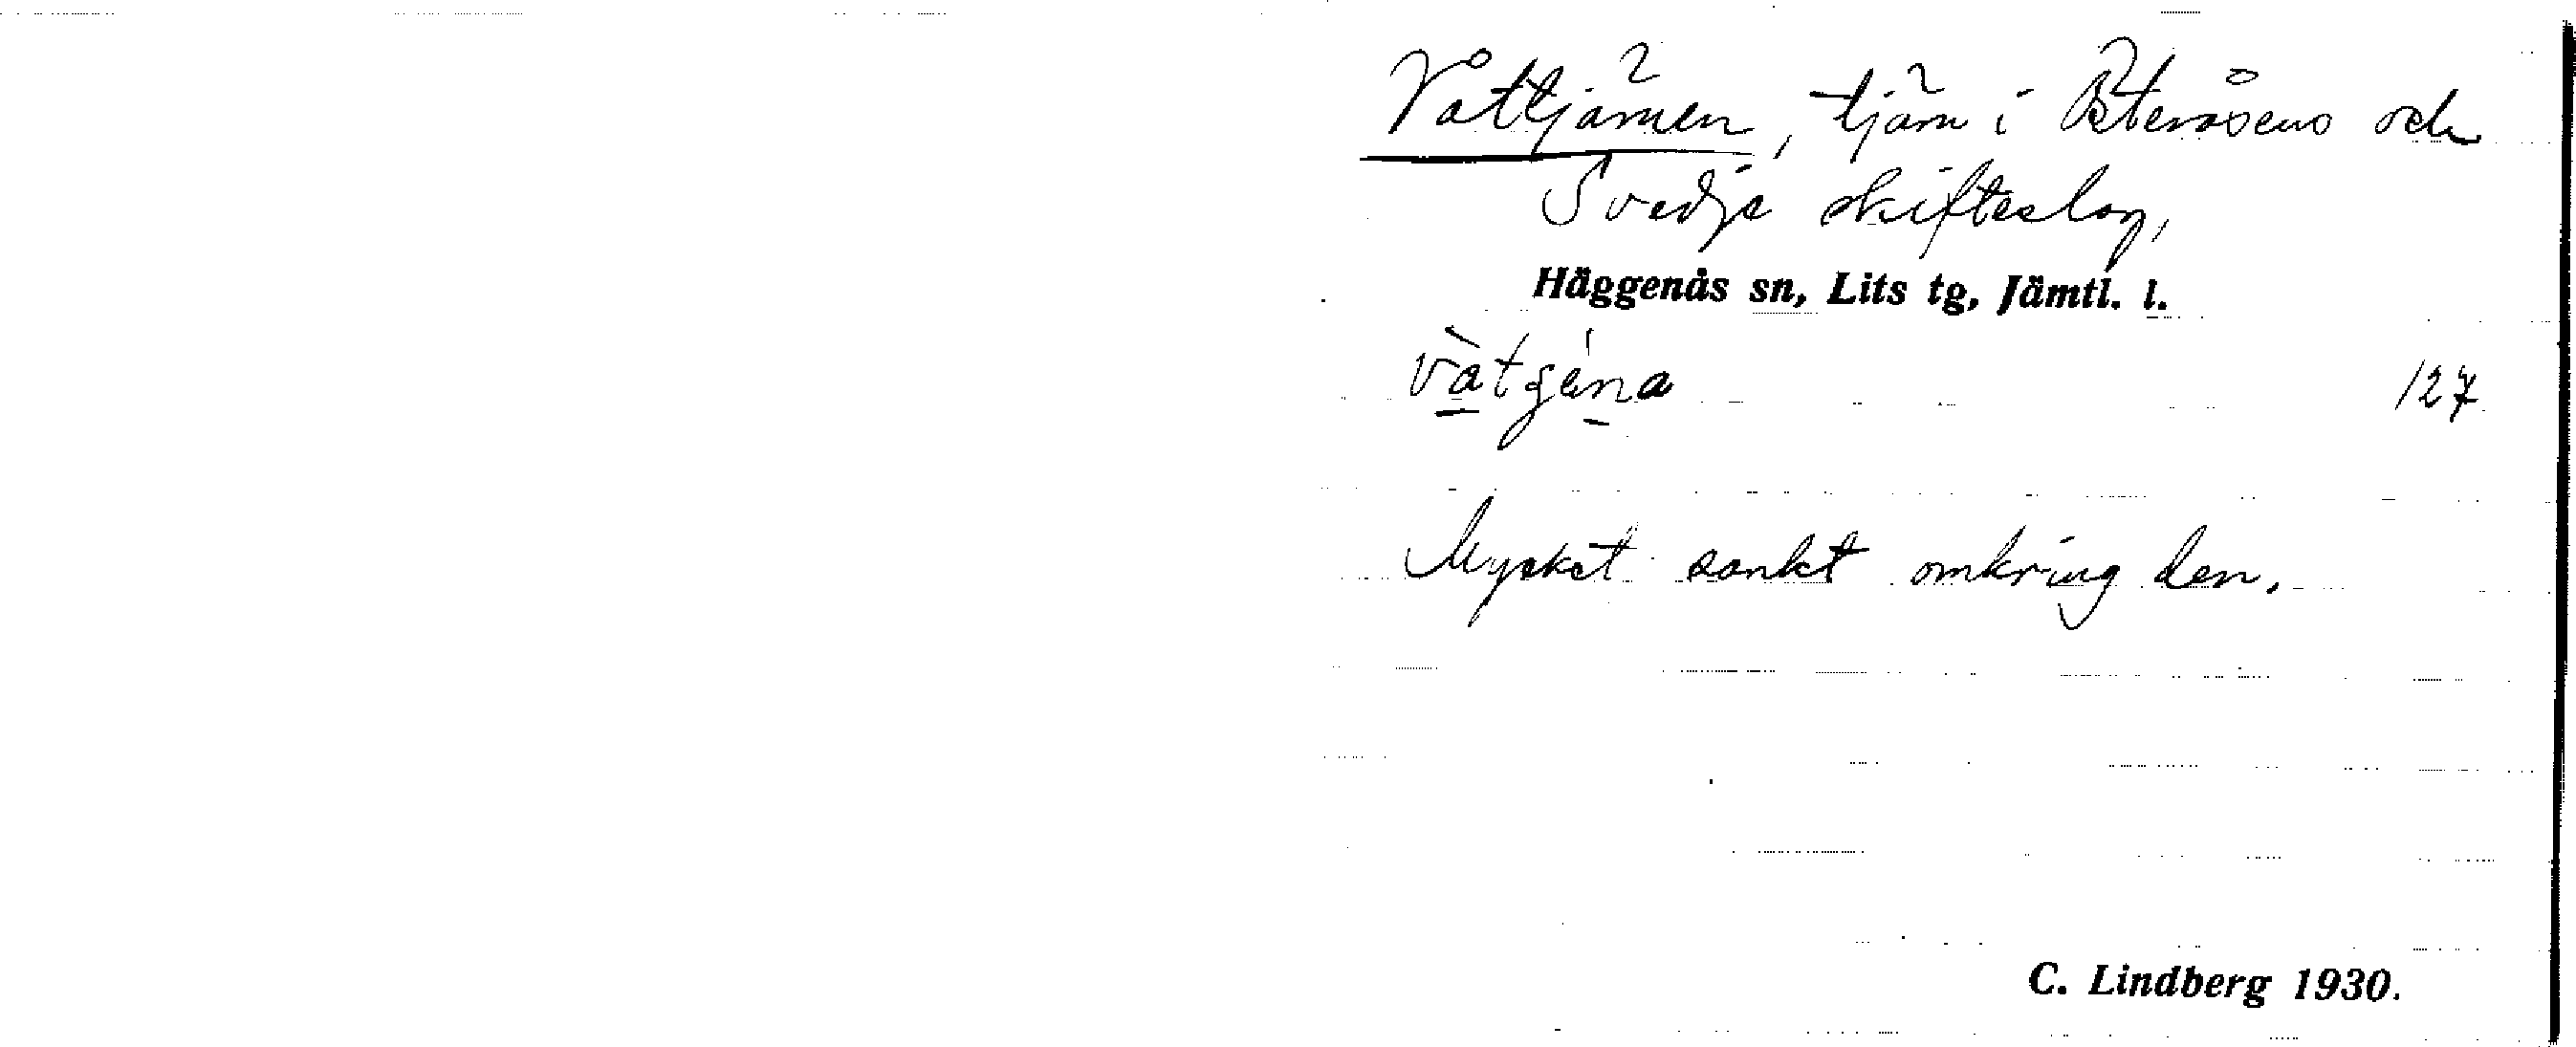 Våttjärnen, tjärn i Österåsens och
Svedje skifteslag,
Häggenås sn, Lits tg, Jämtl. l.
vàtgæ̀na
127
Mycket sankt omkring den.
C. Lindberg 1930.